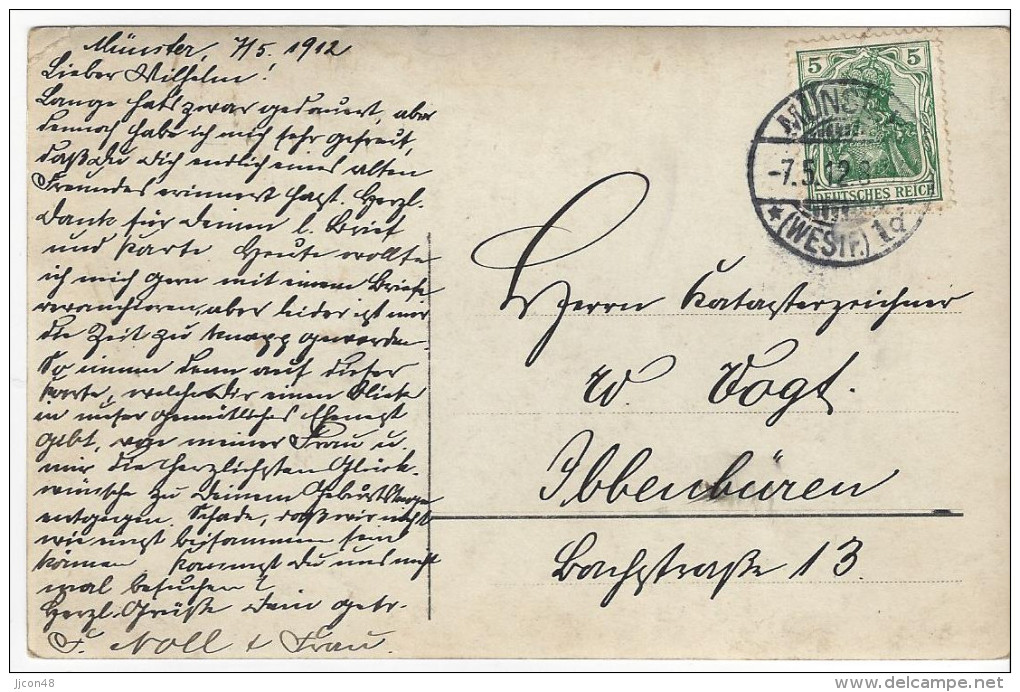 Münster, 7/5. 1912
Lieber Wilhelm!
Lange hats zwar gedauert, aber
dennoch habe ich mich sehr gefreut,
daß du dich endlich eines alten
Freundes erinnert hast. Herzl.
Dank für Deinen l. Brief
und Karte. Heute wollte
ich mich gern mit einem Briefe
revanchieren, aber leider ist mir
die Zeit zu knapp geworden.
So nimm denn auf dieser
Karte, welche Dir einen Blick
in unser gemütliches Ehenest
gibt, von meiner Frau u.
mir die herzlichsten Glück-
wünsche zu Deinem Geburtstage
entgegen. Schade, daß wir nicht
wie einst beisammen sein
können. Kommst Du uns nicht
mal besuchen?
Herzl. Grüße Dein getr.
F. Noll + Frau.
5 5
DEUTSCHES REICH
MÜNSTER
-7.5.12.8
* (WESTF.) 1d
Herrn Katasterzeichner
W. Vogt.
Ibbenbüren
Bachstraße 13.
jjcon48
www.delcampe.net